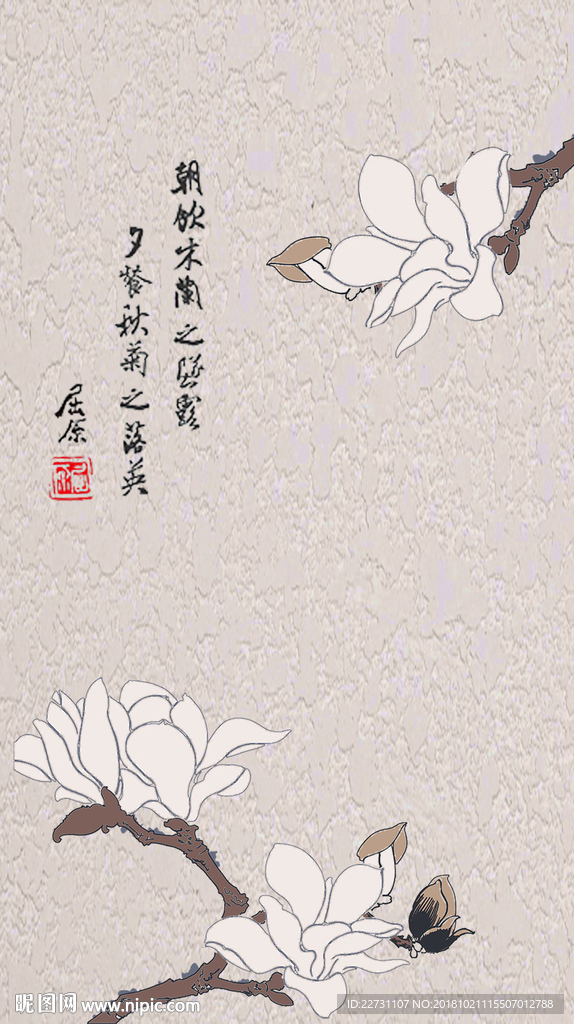 朝饮木蘭之墜露
夕餐秋菊之落英
屈原
昵图网 www.nipic.com
ID:22731107 NO:20181021115507012788